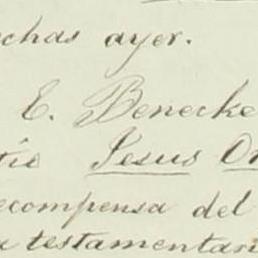 chas ayer.
E. Benecke
tio Jesus Or
recompensa del
testamentari